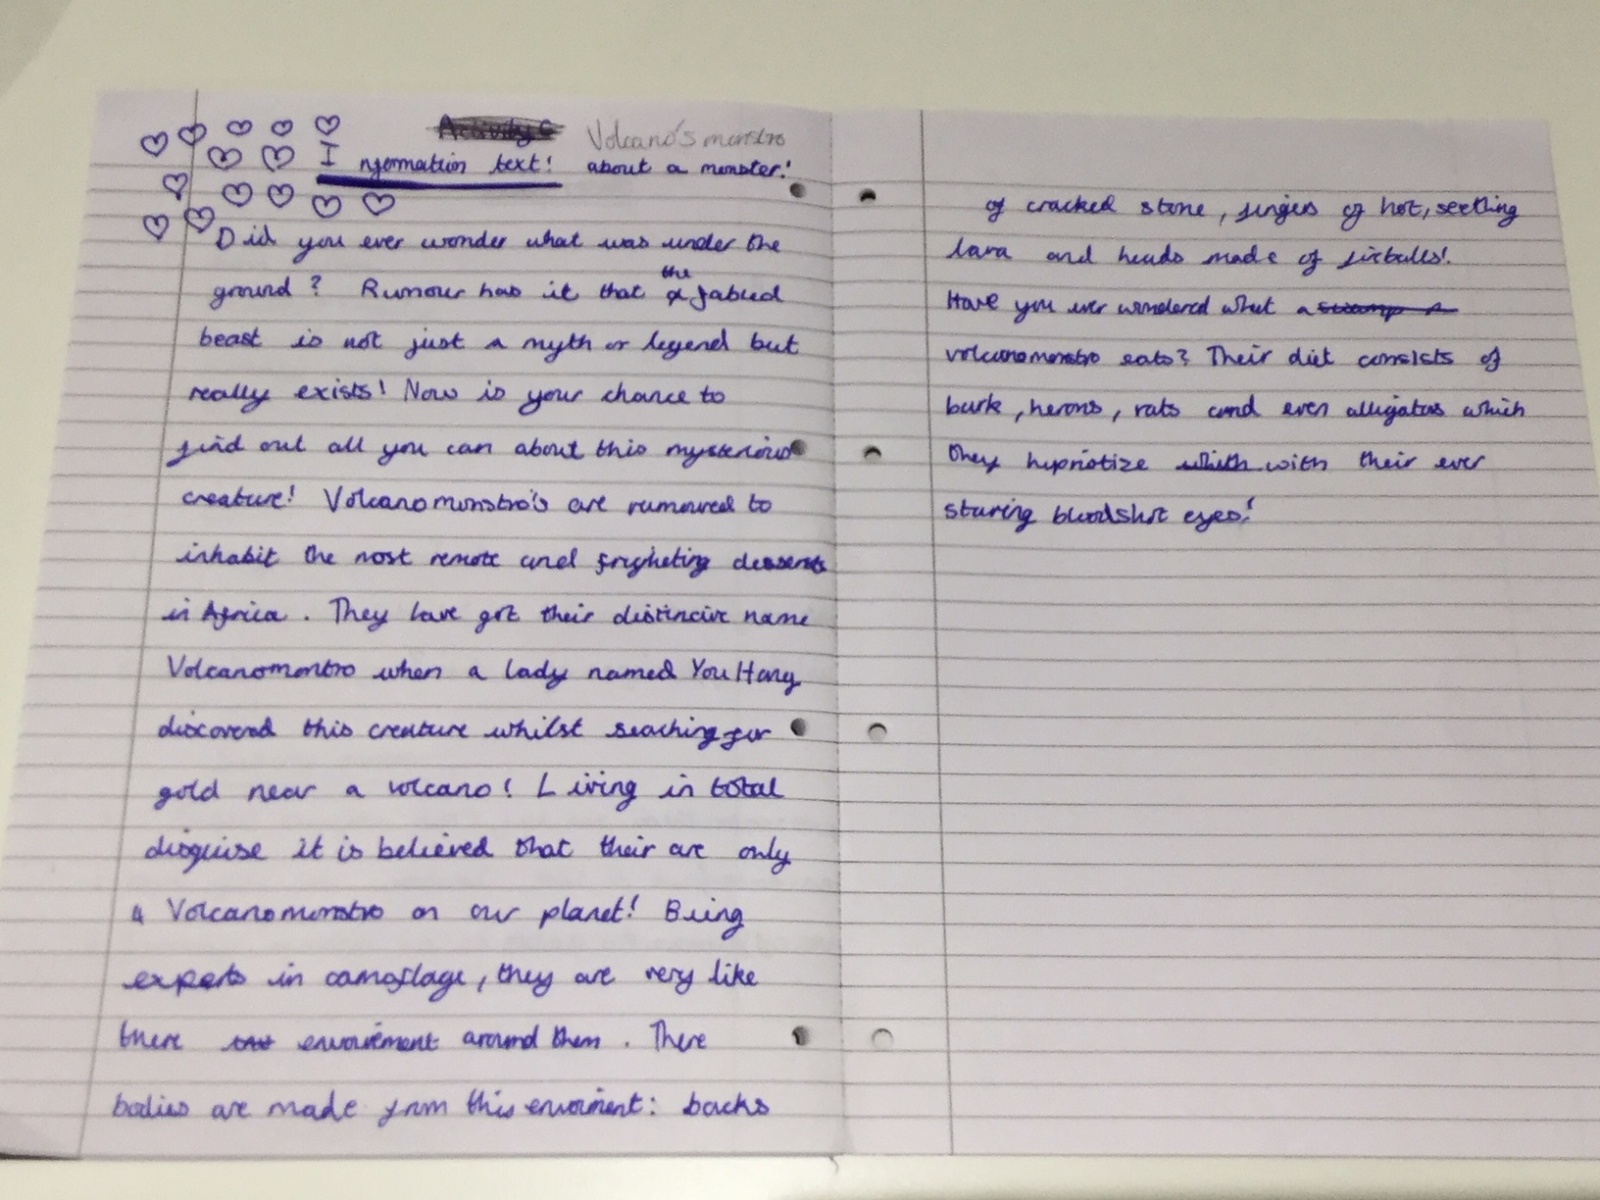 Activity 6 Volcano's monstro
Information text! about a monster!
Did you ever wonder what was under the
ground? Rumour has it that the fabled
beast is not just a myth or legend but
really exists! Now is your chance to
find out all you can about this mysterious
creature! Volcanomonstro's are rumoured to
inhabit the most remote and frigheting desserts
in Africa. They have got their distincive name
Volcanomontro when a lady named You Hang
discovered this creature whilst seaching for
gold near a volcano! Living in total
disguise it is believed that their are only
4 Volcanomonstro on our planet! Being
experts in camoflage, they are very like
there envoirement around them. There
bodies are made from this envoirment: backs
of cracked stone, fingers of hot, seething
lava and heads made of firballs!
Have you ever wondered what a swamp
volcanomonstro eats? Their diet consists of
bark, herons, rats and even alligators which
they hypnotize which with their ever
staring bloodshot eyes!